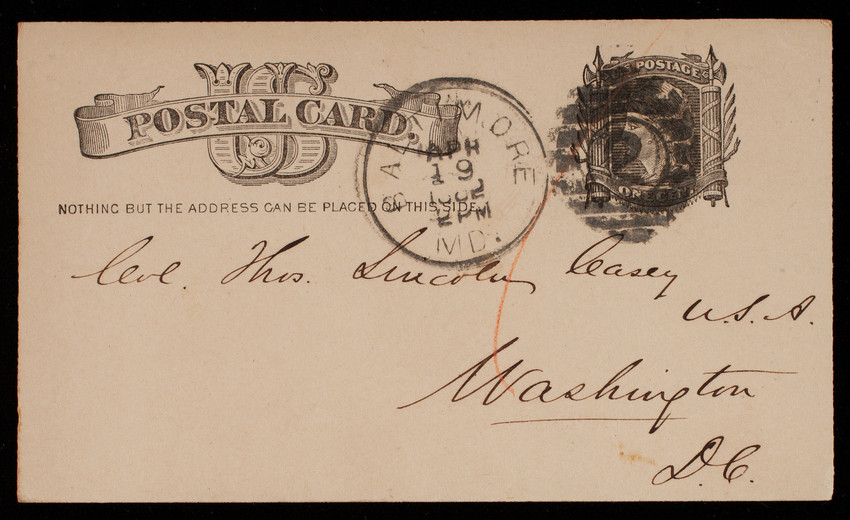 US
POSTAL CARD.
POSTAGE
ONE CENT
BALTIMORE
APR
19
2 PM
MD.
NOTHING BUT THE ADDRESS CAN BE PLACED ON THIS SIDE.
Col. Thos. Lincoln Casey
U.S.A.
Washington
D.C.